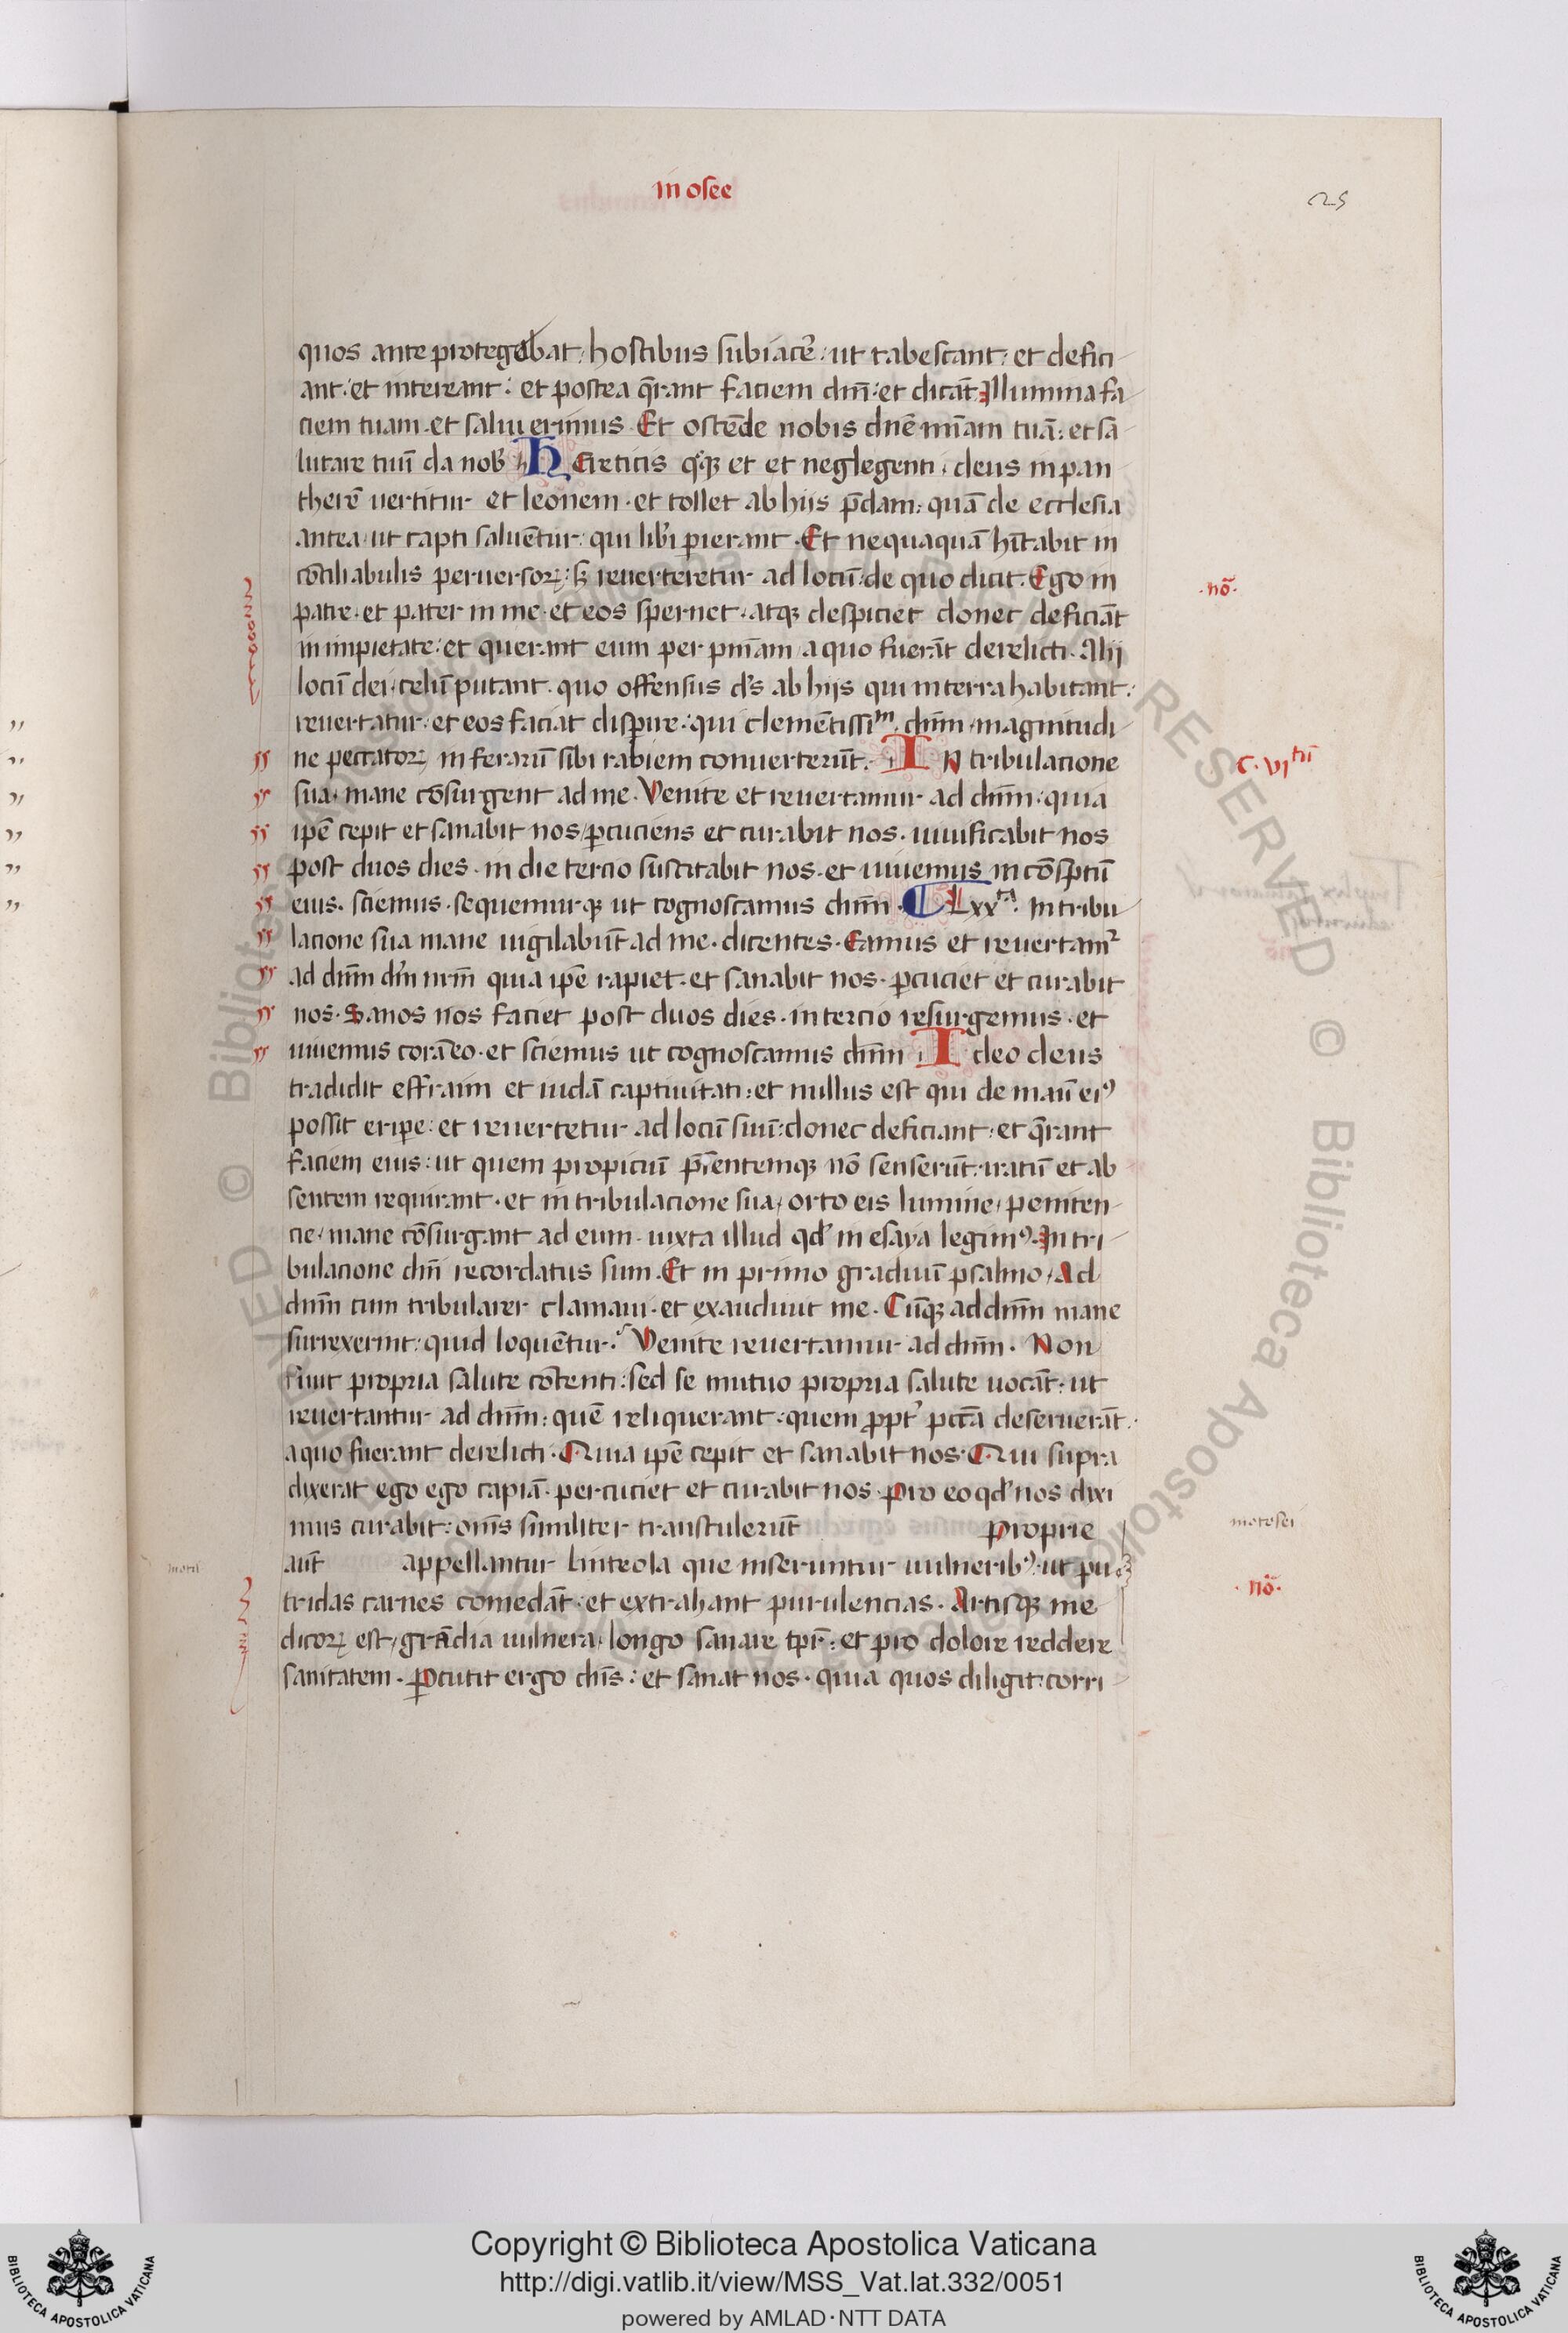 in osee
25
quos ante protegebat: hostibus subiacē: ut tabescant: et defici
ant: et intereant: et postea q̄rant faciem dn̄i: et dicāt. Illumina fa
ciem tuam. et salui erimus. Et ostēde nobis dn̄e mīam tuā: et sa
lutare tuū da nob̾ Hereticis q̊q; et et neglegenti, deus in pan
therē uertitur et leonem. et tollet ab hijs p̄dam: quā de ecclesia
antea. ut capti saluētur: qui lib̾i perierant. Et nequaquā hītabit in
cōciliabulis peruersoꝝ: s; reuerteretur ad locū: de quo dicit. Ego in
patre. et pater in me. et eos spernet. atq; despiciet donec deficiāt
.nō.
in impietate: et querant eum per pnīam a quo fuerāt derelicti. Alij
locū dei, celū putant. quo offensus d̾s ab hijs qui in terra habitant:
reuertatur: et eos faciat disperire: qui clemētissim̄. dn̄m. magnitudi
ne peccatoꝝ in ferarū sibi rabiem conuerterūt. IN tribulacione
C. VItū
sua. mane cōsurgent ad me. Venite et reuertamur ad dn̄m: quia
ip̄e cepit et sanabit nos, ꝑcuciens et curabit nos. uiuificabit nos
post duos dies. in die tercio suscitabit nos. et uiuemus in cōspectū
eius. sciemus. sequemurq; ut cognoscamus dn̄m. Lxxta. In tribu
lacione sua mane uigilabūt ad me. dicentes. Eamus et reuertamꝰ
ad dn̄m dm̄ nr̄m quia ip̄e rapiet. et sanabit nos. ꝑcuciet et curabit
nos. Sanos nos faciet post duos dies. in tercio resurgemus. et
uiuemus corā eo. et sciemus ut cognoscamus dn̄m Ideo deus
tradidit effraim et iudā captiuitati: et nullus est qui de manu eiꝰ
possit eripe: et reuertetur ad locū suū: donec deficiant: et q̄rant
faciem eius: ut quem propiciū p̄sentemq; nō senserūt: iratū et ab
sentem requirant. et in tribulacione sua, orto eis lumine, peniten
cie, mane cōsurgant ad eum. iuxta illud qd̾ in esaya legimꝰ. In tri
bulacione dn̄i recordatus sum. Et in primo graduū psalmo, Ad
dn̄m cum tribularer clamaui. et exaudiuit me. Cūq; ad dn̄m mane
surrexerint: quid loquētur. Venite reuertamur ad dn̄m. Non
sunt propria salute cōtenti: sed se mutuo propria salute uocāt: ut
reuertantur ad dn̄m: quē reliquerant: quem ꝓpt̾ pccā deseruerāt.
a quo fuerant derelicti. Quia ip̄e cepit et sanabit nos. Qui supra
dixerat ego ego capiā. percuciet et curabit nos. pro eo qd̾ nos dixi
mus curabit: om̄s similiter transtulerūt Proprie
motosei
motu
aūt appellantur linteola que inseruntur uulneribꝰ. ut pu
.nō.
tridas carnes comedāt: et extrahant purulencias. Artisq; me
dicoꝝ est, grādia uulnera, longo sanare tp̄r: et pro dolore reddere
sanitatem. Ꝑcutit ergo dn̄s: et sanat nos. quia quos diligit: corri
Copyright © Biblioteca Apostolica Vaticana
http://digi.vatlib.it/view/MSS_Vat.lat.332/0051
powered by AMLAD·NTT DATA
BIBLIOTECA APOSTOLICA VATICANA
BIBLIOTECA APOSTOLICA VATICANA